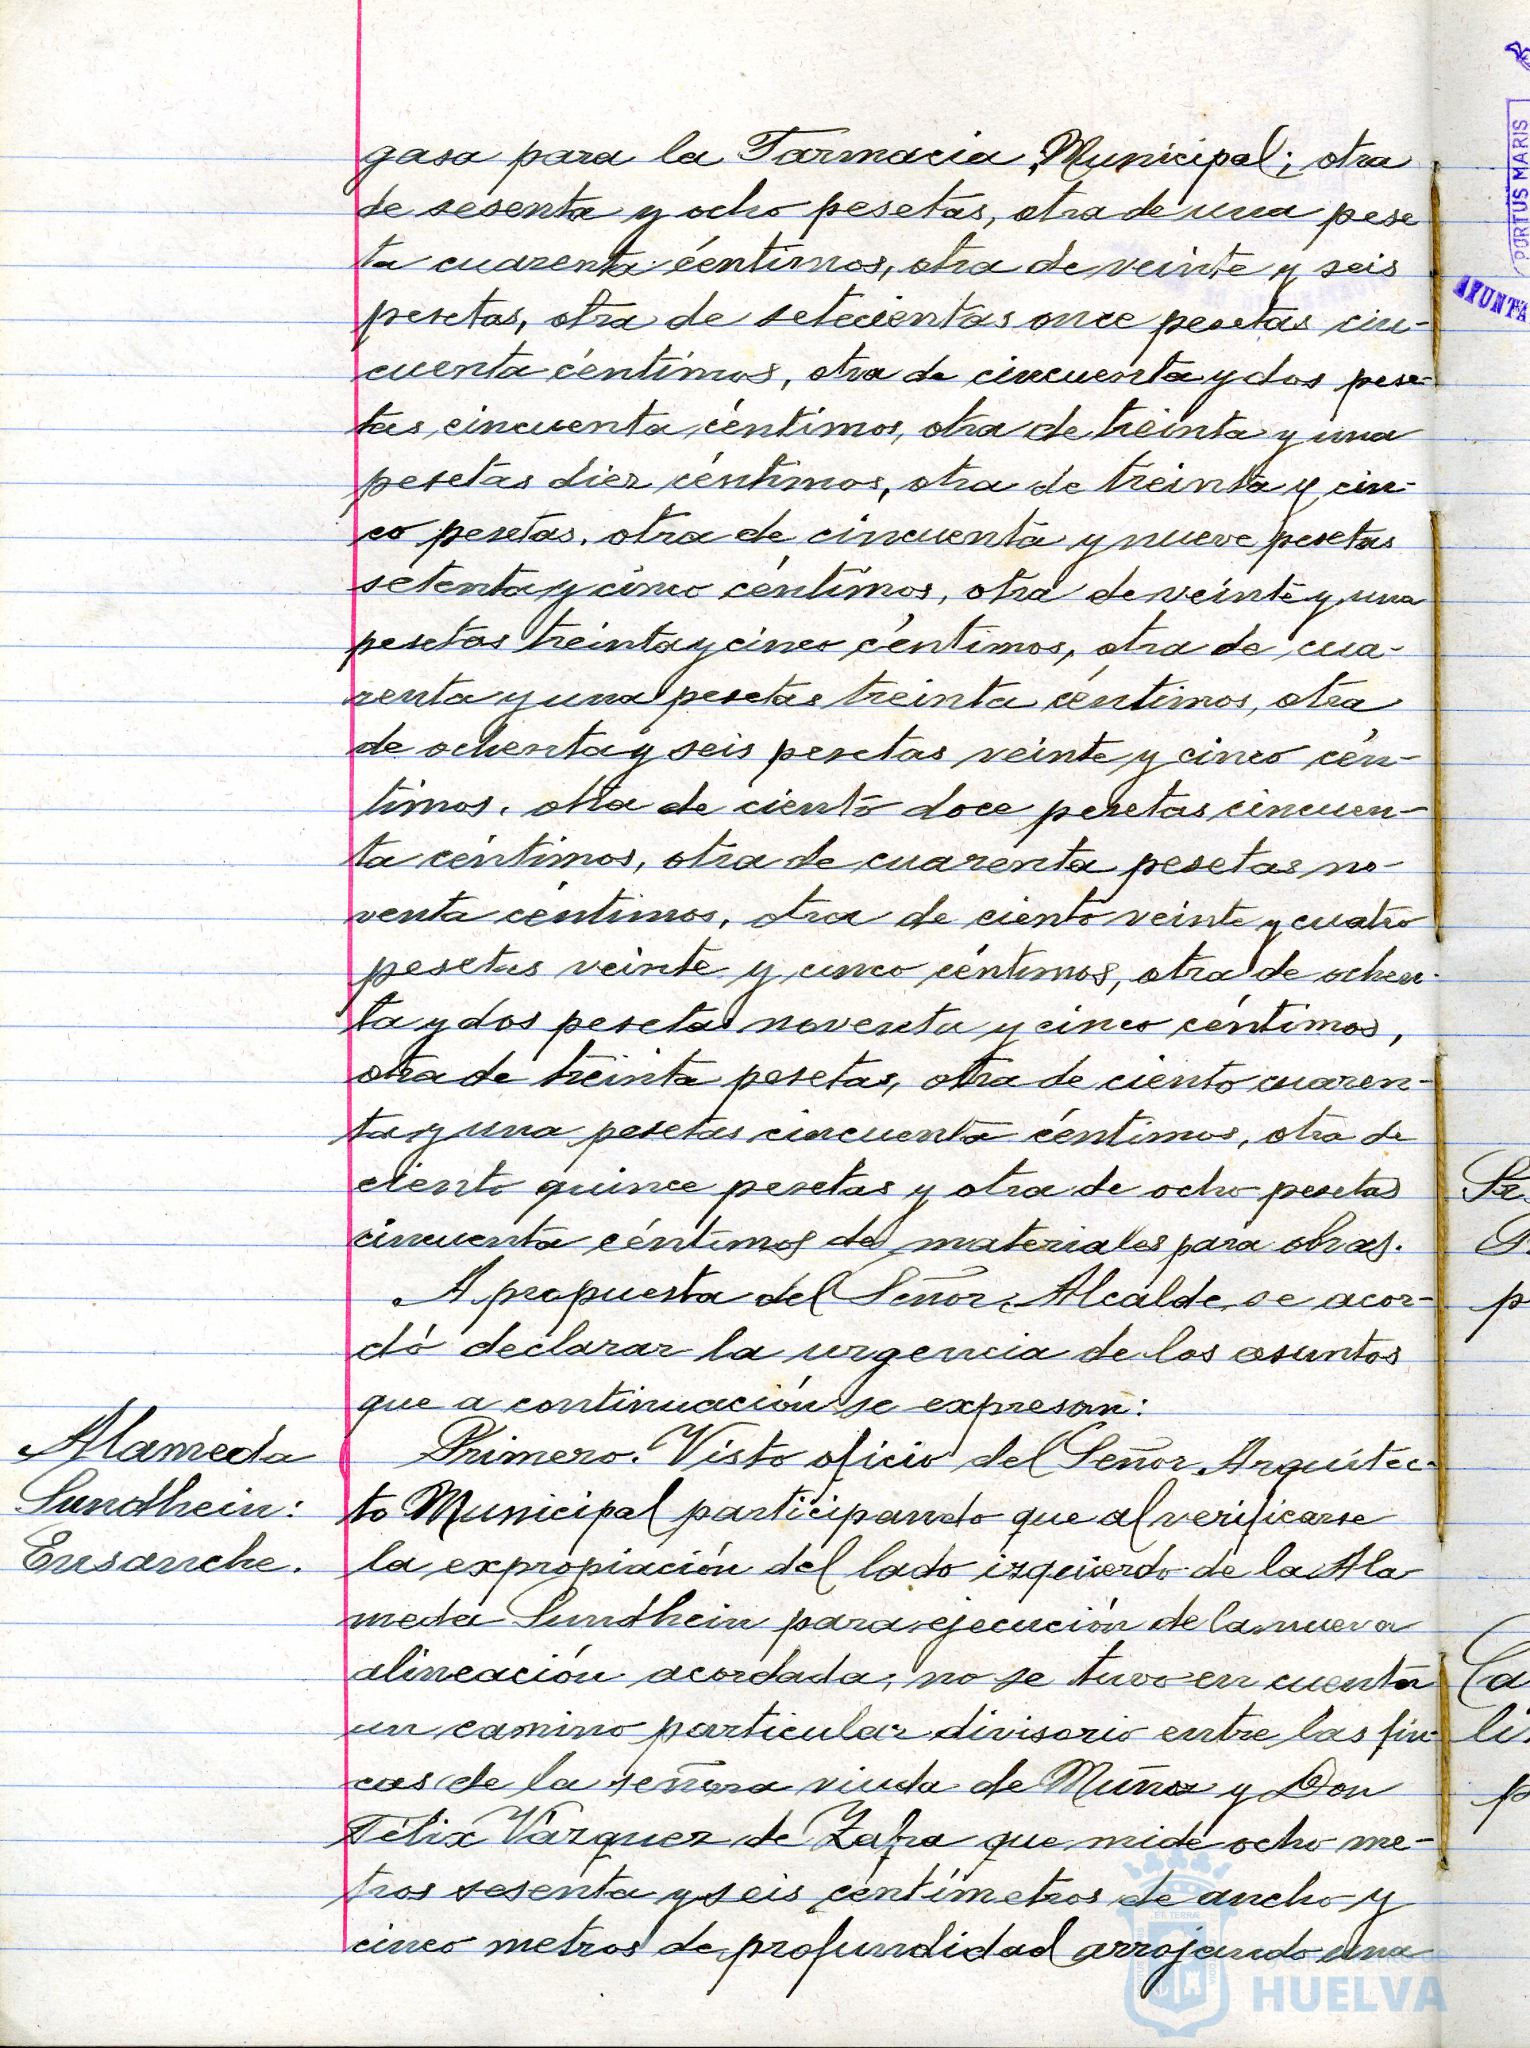 gasa para la Farmacia Municipal; otra
de sesenta y ocho pesetas, otra de una pese
ta cuarenta céntimos, otra de veinte y seis
pesetas, otra de setecientas once pesetas cin-
cuenta céntimos, otra de cincuenta y dos pese-
tas cincuenta céntimos, otra de treinta y una
pesetas diez céntimos, otra de treinta y cin-
co pesetas, otra de cincuenta y nueve pesetas
setenta y cinco céntimos, otra de veinte y una
pesetas treinta y cinco céntimos, otra de cua-
renta y una pesetas treinta céntimos, otra
de ochenta y seis pesetas veinte y cinco cén-
timos, otra de ciento doce pesetas cincuen-
ta céntimos, otra de cuarenta pesetas no-
venta céntimos, otra de ciento veinte y cuatro
pesetas veinte y cinco céntimos, otra de ochen-
ta y dos pesetas noventa y cinco céntimos,
otra de treinta pesetas, otra de ciento cuaren-
ta y una pesetas cincuenta céntimos, otra de
ciento quince pesetas y otra de ocho pesetas
cincuenta céntimos de materiales para obras.
A propuesta del Señor Alcalde se acor-
dó declarar la urgencia de los asuntos
que a continuación se expresan:
Alameda
Sundhein:
Ensanche.
Primero. Visto oficio del Señor Arquitec-
to Municipal participando que al verificarse
la expropiación del lado izquierdo de la Ala
meda Sundhein para ejecución de la nueva
alineación acordada, no se tuvo en cuenta
un camino particular divisorio entre las fin-
cas de la señora viuda de Muñoz y Don
Félix Vázquez de Zafra que mide ocho me-
tros sesenta y seis centímetros de ancho y
cinco metros de profundidad arrojando una
PORTUS MARIS
AYUNTA
HUELVA